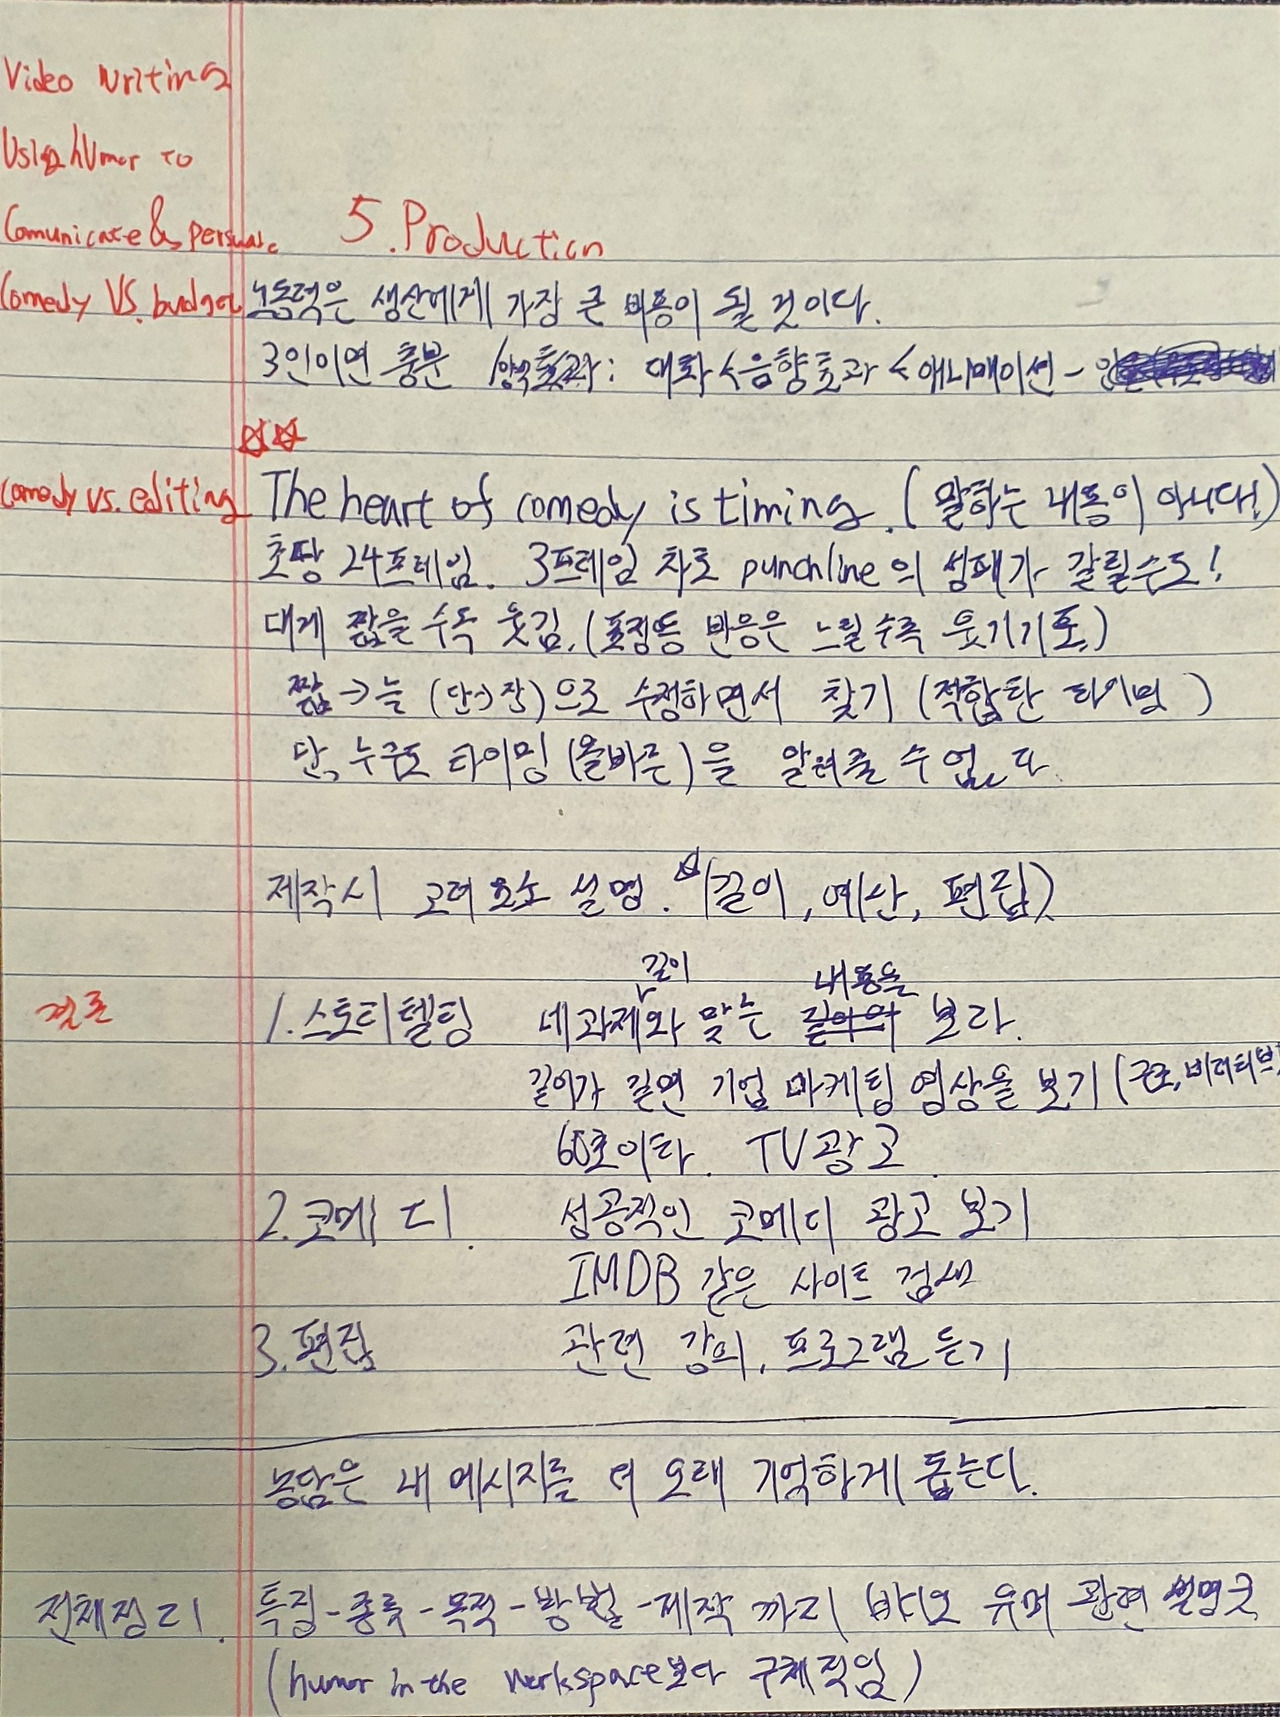 Video writing
Using humor to
Comunicate & persuade
5. Production
Comedy VS. budget 노동력은 생산에게 가장 큰 비용이 될 것이다.
3인이면 충분 대화 < 음향효과 < 애니메이션 -
Comedy vs. editing The heart of comedy is timing. (말하는 내용이 아니다!)
초당 24프레임. 3프레임 차로 punchline의 성패가 갈릴수도!
대게 짧을 수록 웃김. (표정등 반응은 느릴수록 웃기기도.)
짧 → 늘 (단→장)으로 수정하면서 찾기 (적합한 타이밍)
단, 누구도 타이밍 (올바른)을 알려줄 수 없다.
제작시 고려 요소 설명. (길이, 예산, 편집)
길이 내용을
결론 1. 스토리텔링 네 과제와 맞는 보라.
길이가 길면 기업 마케팅 영상을 보기 (구조, 내러티브)
60초이하. TV광고.
2. 코메디. 성공적인 코메디 광고 보기
IMDB 같은 사이트 검색
3. 편집 관련 강의, 프로그램 듣기
농담은 내 메시지를 더 오래 기억하게 돕는다.
전체정리. 특징-종류-목적-방법-제작 까지 유머 관련 설명굿
(humor in the workspace보다 구체적임)